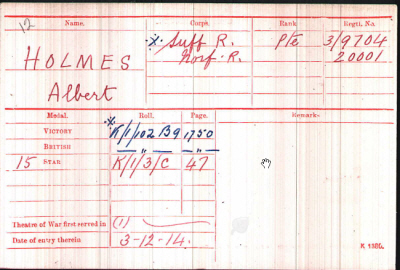 12
Name. Corps. Rank Regtl. No.
HOLMES × Suff R. Pte 3/9704
Norf. R. 20001
Albert
Medal. Roll. Page. Remarks.
VICTORY × K/1/102 B9 1750
BRITISH — " — — " —
15 STAR K/1/3/C 47
Theatre of War first served in (1)
Date of entry therein 3-12-14.
K 1380.